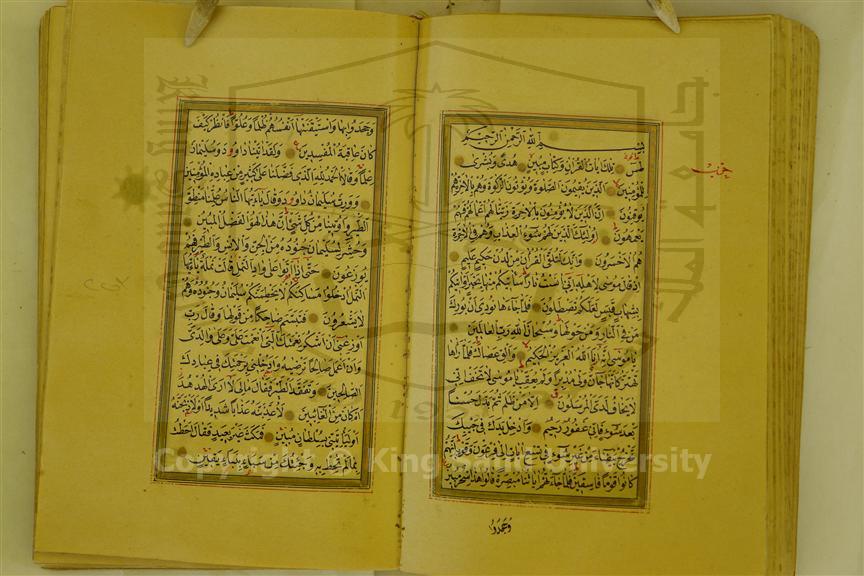 بسم الله الرحمن الرحيم
طس تلك ايات القران وكتاب مبين هدى وبشرى
للمؤمنين الذين يقيمون الصلوة ويؤتون الزكوة وهم بالاخرة هم
يوقنون ان الذين لا يؤمنون بالاخرة زينا لهم اعمالهم فهم
يعمهون اولئك الذين لهم سوء العذاب وهم في الاخرة
هم الاخسرون وانك لتلقى القران من لدن حكيم عليم
اذ قال موسى لاهله اني انست نارا ساتيكم منها بخبر او اتيكم
بشهاب قبس لعلكم تصطلون فلما جاءها نودي ان بورك
من في النار ومن حولها وسبحان الله رب العالمين
يا موسى انه انا الله العزيز الحكيم والق عصاك فلما راها
تهتز كانها جان ولى مدبرا ولم يعقب يا موسى لا تخف اني
لا يخاف لدي المرسلون الا من ظلم ثم بدل حسنا
بعد سوء فاني غفور رحيم وادخل يدك في جيبك
تخرج بيضاء من غير سوء في تسع ايات الى فرعون وقومه انهم
كانوا قوما فاسقين فلما جاءتهم اياتنا مبصرة قالوا هذا سحر مبين
وجحدوا
وجحدوا بها واستيقنتها انفسهم ظلما وعلوا فانظر كيف
كان عاقبة المفسدين ولقد اتينا داود وسليمان
علما وقالا الحمد لله الذي فضلنا على كثير من عباده المؤمنين
وورث سليمان داود وقال يا ايها الناس علمنا منطق
الطير واوتينا من كل شيء ان هذا لهو الفضل المبين
وحشر لسليمان جنوده من الجن والانس والطير فهم
يوزعون حتى اذا اتوا على واد النمل قالت نملة يا ايها
النمل ادخلوا مساكنكم لا يحطمنكم سليمان وجنوده وهم
لا يشعرون فتبسم ضاحكا من قولها وقال رب
اوزعني ان اشكر نعمتك التي انعمت علي وعلى والدي
وان اعمل صالحا ترضيه وادخلني برحمتك في عبادك
الصالحين وتفقد الطير فقال مالي لا ارى الهدهد
ام كان من الغائبين لاعذبنه عذابا شديدا او لاذبحنه
او لياتيني بسلطان مبين فمكث غير بعيد فقال احطت
بما لم تحط به وجئتك من سباء بنباء يقين
حزب
جامعة الملك سعود
1957
Copyright © King Saud University